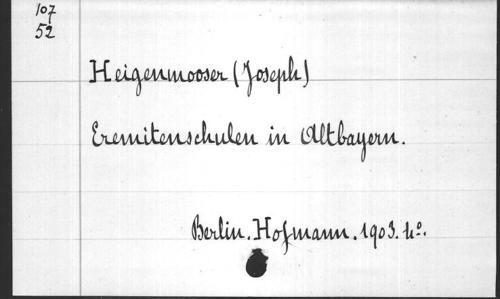 107
52
Heigenmooser (Joseph)
Eremitenschulen in Altbayern.
Berlin. Hofmann. 1903. 4°.